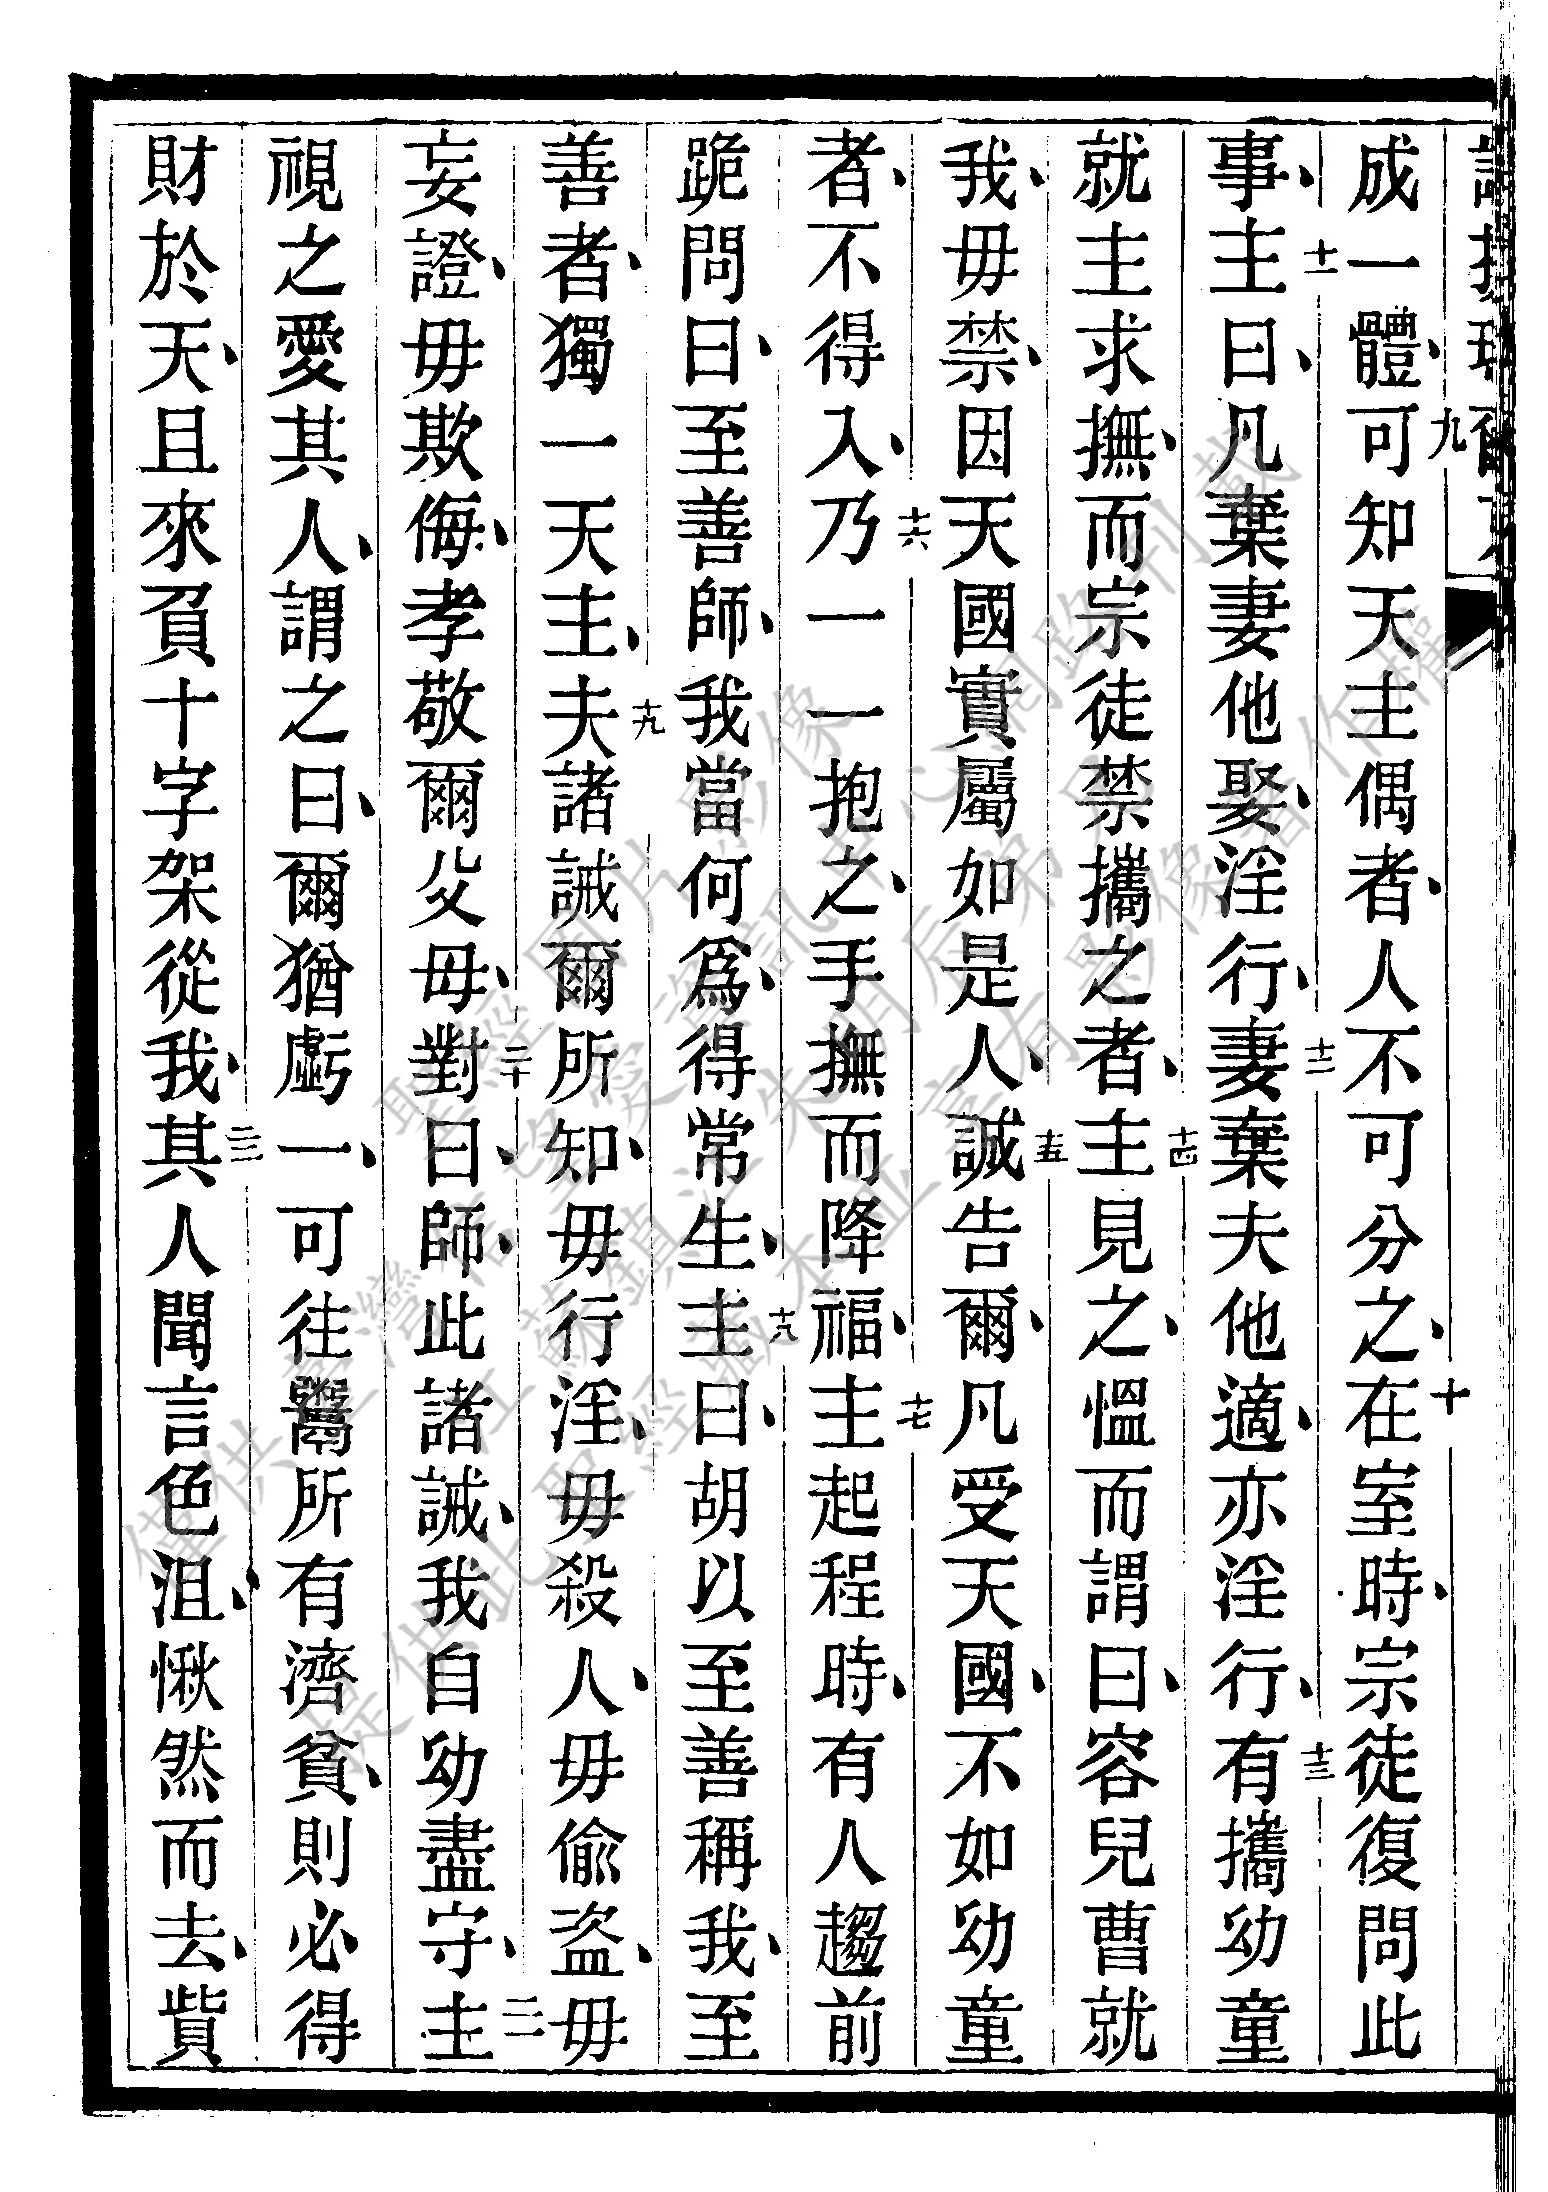 成一體、九可知天主偶者、人不可分之、十在室時、宗徒復問此
事、十一主曰、凡棄妻他娶、淫行、十二妻棄夫他適、亦淫行、十三有攜幼童
就主求撫、而宗徒禁攜之者、十四主見之、慍而謂曰、容兒曹就
我、毋禁、因天國實屬如是人、十五誠告爾、凡受天國、不如幼童
者、不得入、十六乃一一抱之、手撫而降福、十七主起程時、有人趨前
跪問曰、至善師、我當何爲、得常生、十八主曰、胡以至善稱我、至
善者、獨一天主、十九夫諸誡爾所知、毋行淫、毋殺人、毋偷盜、毋
妄證、毋欺侮、孝敬爾父母、二十對曰、師、此諸誡、我自幼盡守、二一主
視之愛其人、謂之曰、爾猶虧一、可往鬻所有濟貧、則必得
財於天、且來負十字架從我、二二其人聞言色沮、愀然而去、貲